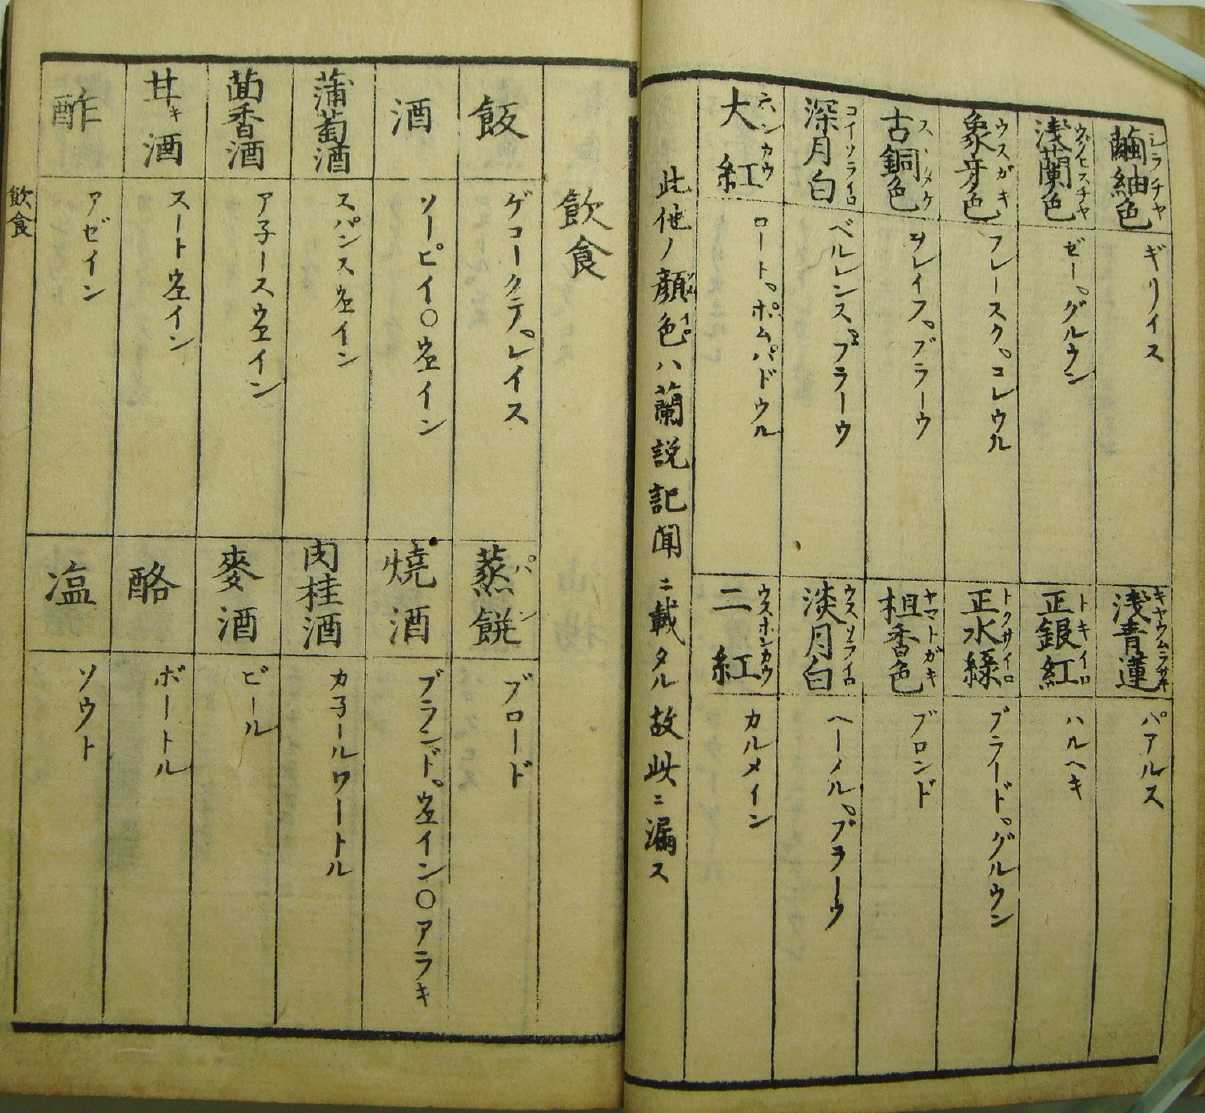 繭紬色 シラチヤ
ギリイス
浅青蓮
パアルス
浅蘭色
ゼー、グルウン
正銀紅 トキイロ
ハルヘキ
象牙色 ウスガキ
フレースク、コレウル
正水緑 トクサイロ
ブラード、グルウン
古銅色
ヲレイフ、ブラーウ
柤香色 ヤマトガキ
ブロンド
深月白 コイソライロ
ベルレンス、ブラーウ
淡月白 ウスソライロ
ヘーメル、ブラーウ
大紅
ロート、ポムパドウル
二紅 ウスホンカウ
カルメイン
此他ノ顔色ハ蘭説記聞ニ載タル故此ニ漏ス
飲食
飯
ゲコークテ、レイス
蒸餅 パン
ブロード
酒
ソーピイ〇ウエイン
焼酒
ブランド、ウエイン〇アラキ
蒲萄酒
スパンスウエイン
肉桂酒
カ子ールワートル
茴香酒
ア子ースウエイン
麥酒
ビール
甘キ酒
スートウエイン
酪
ボートル
酢
アゼイン
塩
ソウト
飲食